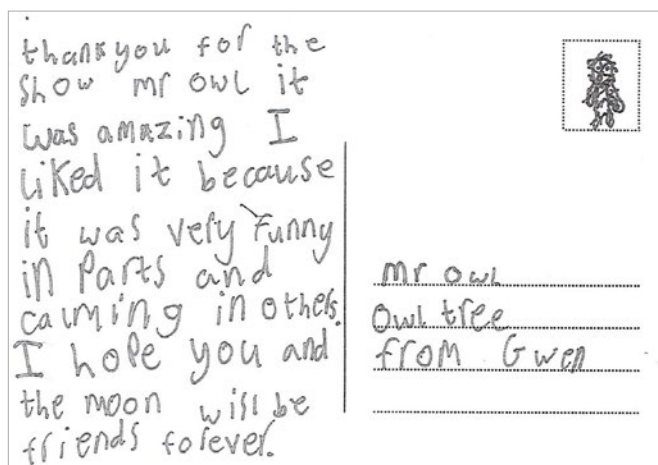 thankyou for the
show mr owl it
was amazing I
liked it because
it was very funny
in parts and
calming in others.
I hope you and
the moon will be
friends forever.
mr owl
owl tree
from Gwen